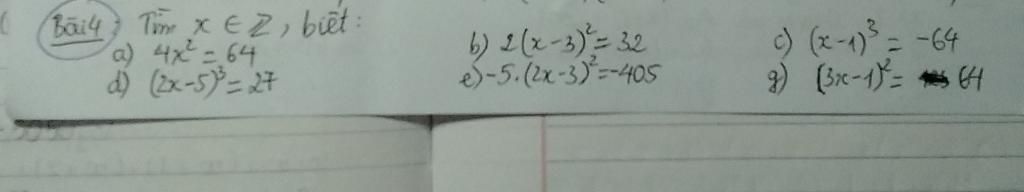 Bài 4: Tìm x ∈ Z, biết:
a) 4x² = 64 b) 2(x-3)² = 32 c) (x-1)³ = -64
d) (2x-5)³ = 27 e) -5.(2x-3)² = -405 g) (3x-1)² = 64